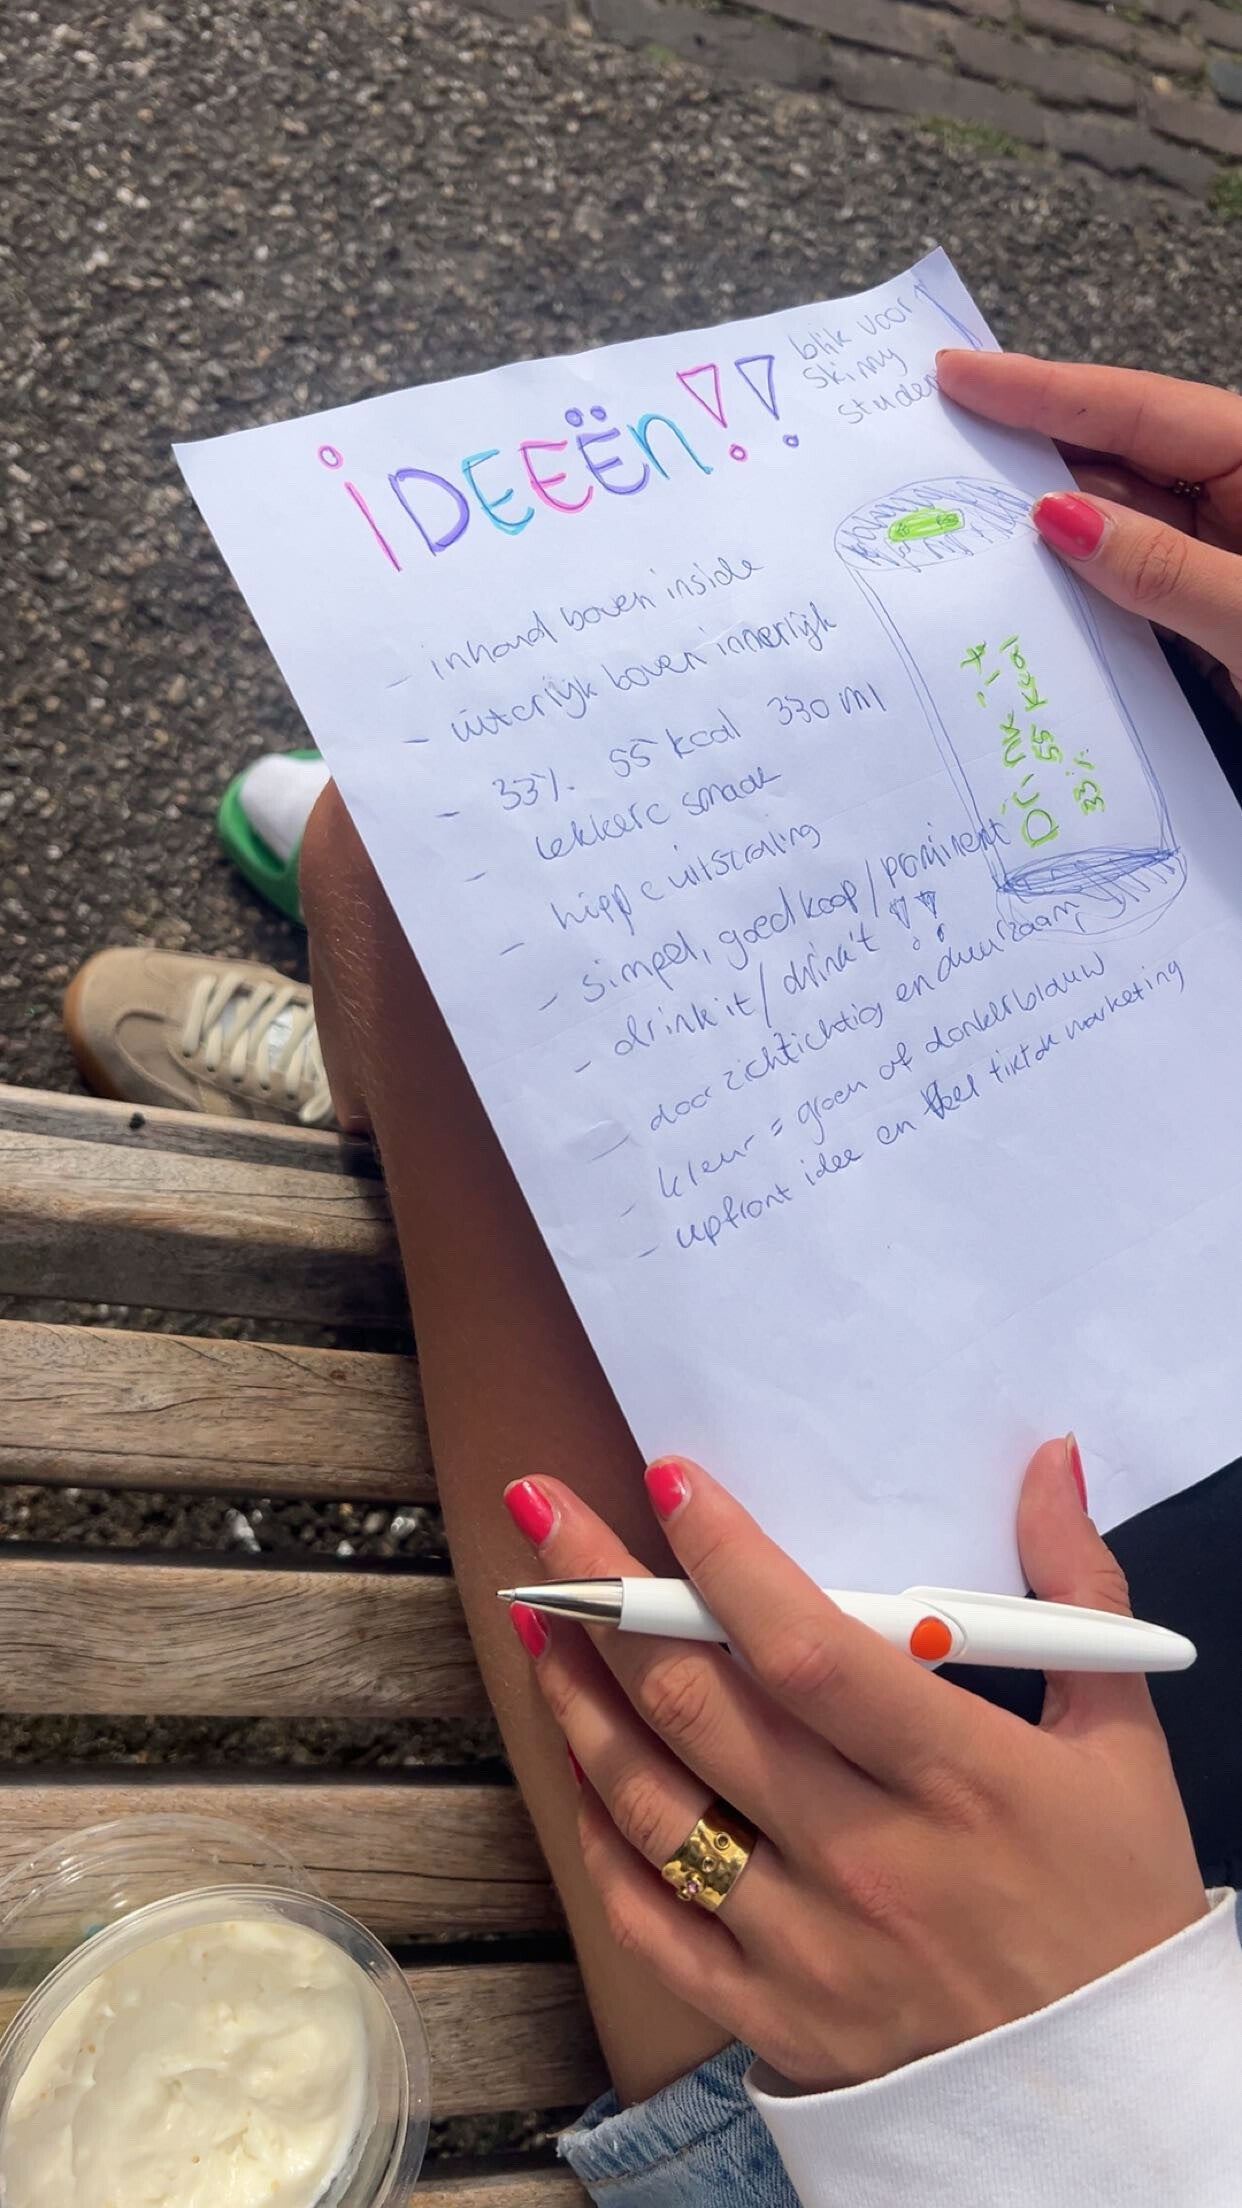 iDEEËn!!
blik voor
skinny
- inhoud boven inside
- uiterlijk boven innerlijk
- 33% 55 kcal 330 ml
- lekkere smaak
- hippe uitstraling
- simpel, goedkoop/prominent
- drink it/drink't !!
- doorzichtichtig en duurzaam
- kleur = groen of donkerblauw
- upfront idee en veel tiktok marketing
Drink it
55 kcal
33%